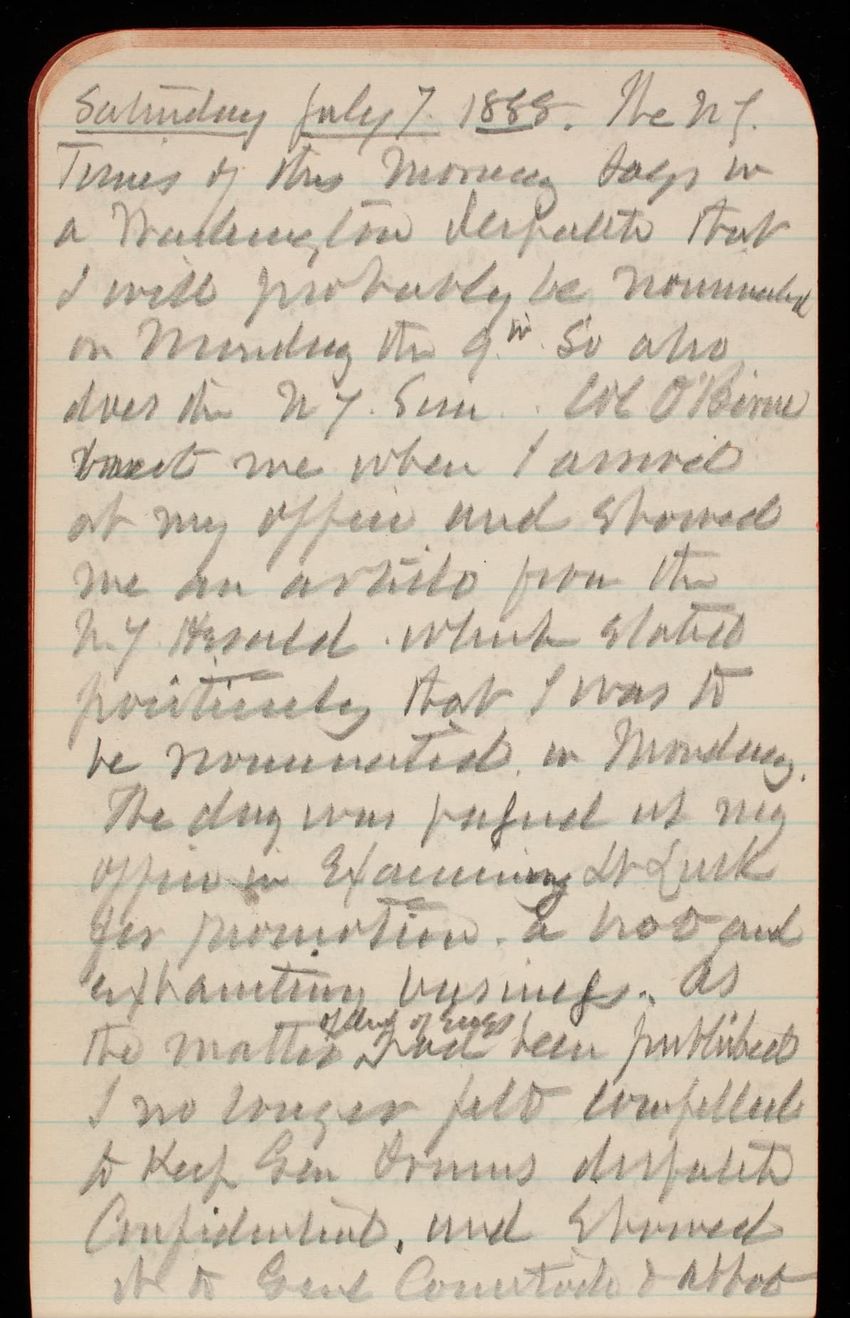 Saturday July 7. 1888. The N.Y.
Times of this Morning says in
a Washington despatch that
I will probably be nominated
on Monday the 9th. So also
does the N.Y. Sun. Col O'Beirne
met me when I arrived
at my office and showed
me an article from the
N.Y Herald which stated
positively that I was to
be nominated on Monday.
The day was passed at my
office in Examining Lt Lusk
for promotion. a hot and
exhausting business. As
the matter of Chf of Engs had been published
I no longer felt compelled
to Keep Gen Drums despatch
Confidential, and Showed
it to Genl Comstock & Abbot